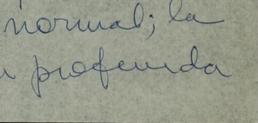 normal; la
profunda